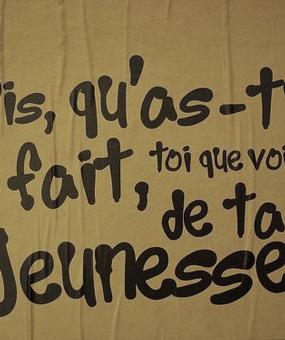 is, qu'as-t
fait, toi que voi
de ta
Jeunesse